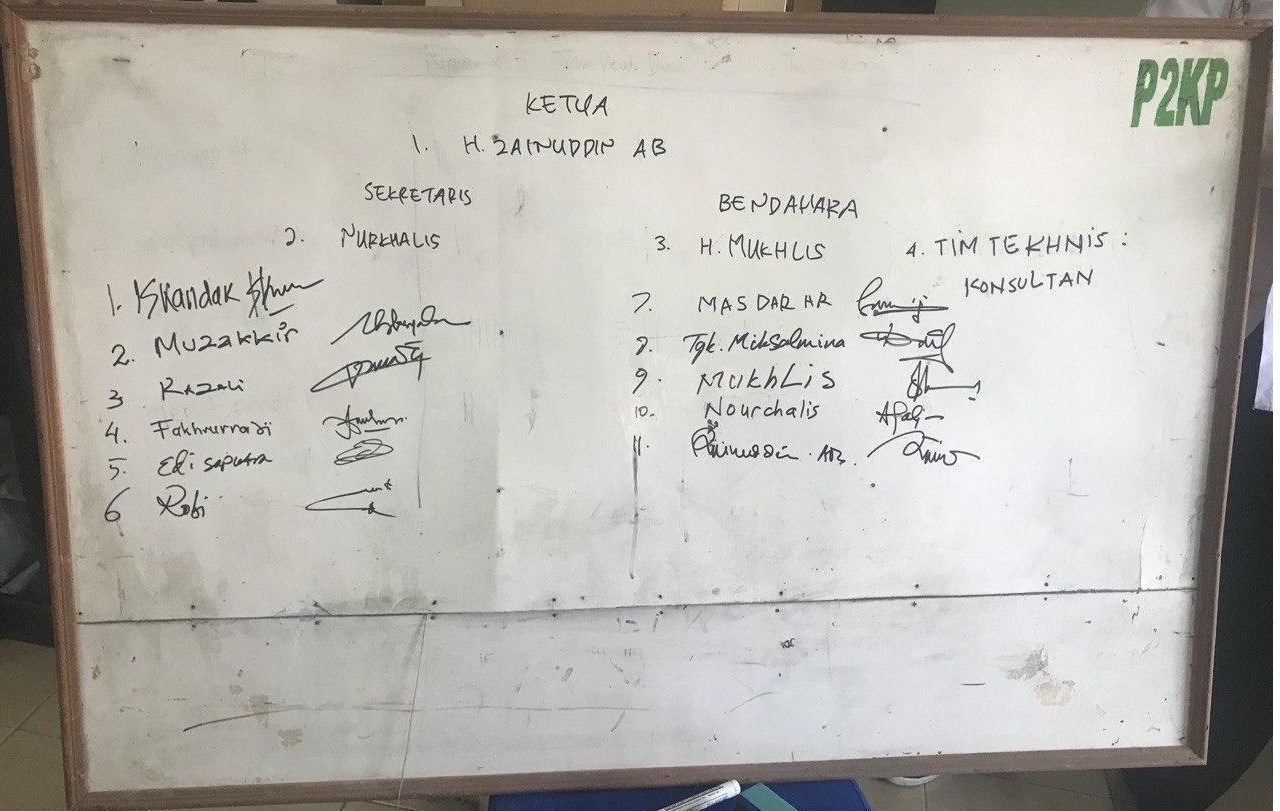 P2KP
KETUA
1. H. ZAINUDDIN AB
SEKRETARIS
2. NURKHALIS
BENDAHARA
3. H. MUKHLIS
4. TIM TEKHNIS :
KONSULTAN
1. Iskandar
2. Muzakkir
3 Razali
4. Fakhrurrazi
5. Edi saputra
6 Robi
7. MASDAR HR
8. Tgk. Miksalmina
9. MUKhLis
10. Nourchalis
11. Zainuddin. AB.